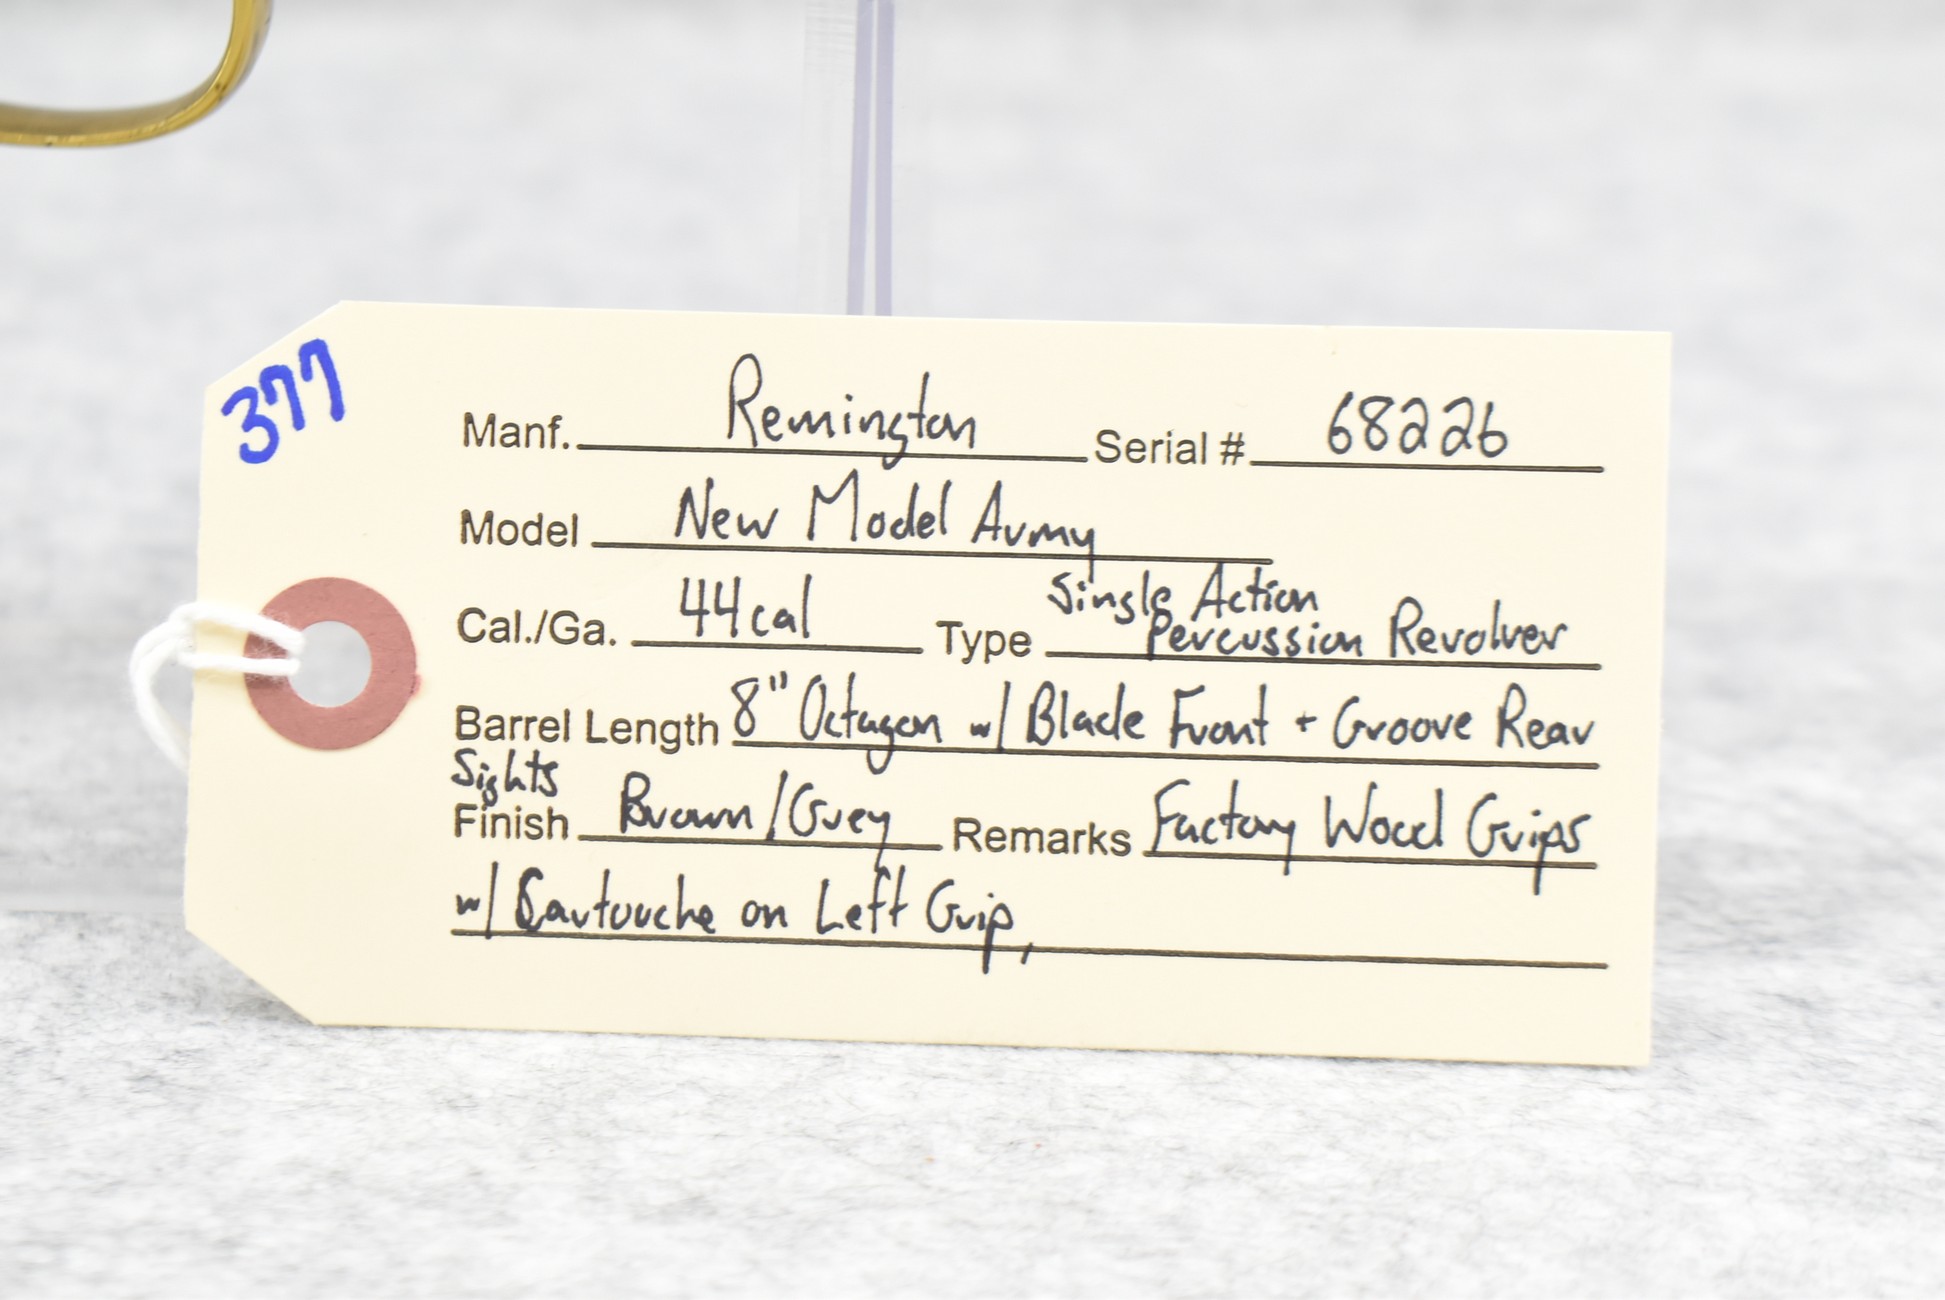 377
Manf. Remington Serial # 68226
Model New Model Army
Cal./Ga. 44cal Type Single Action
Percussion Revolver
Barrel Length 8" Octagon w/ Blade Front + Groove Rear
Sights
Finish Brown/Grey Remarks Factory Wood Grips
w/ Cartouche on Left Grip,